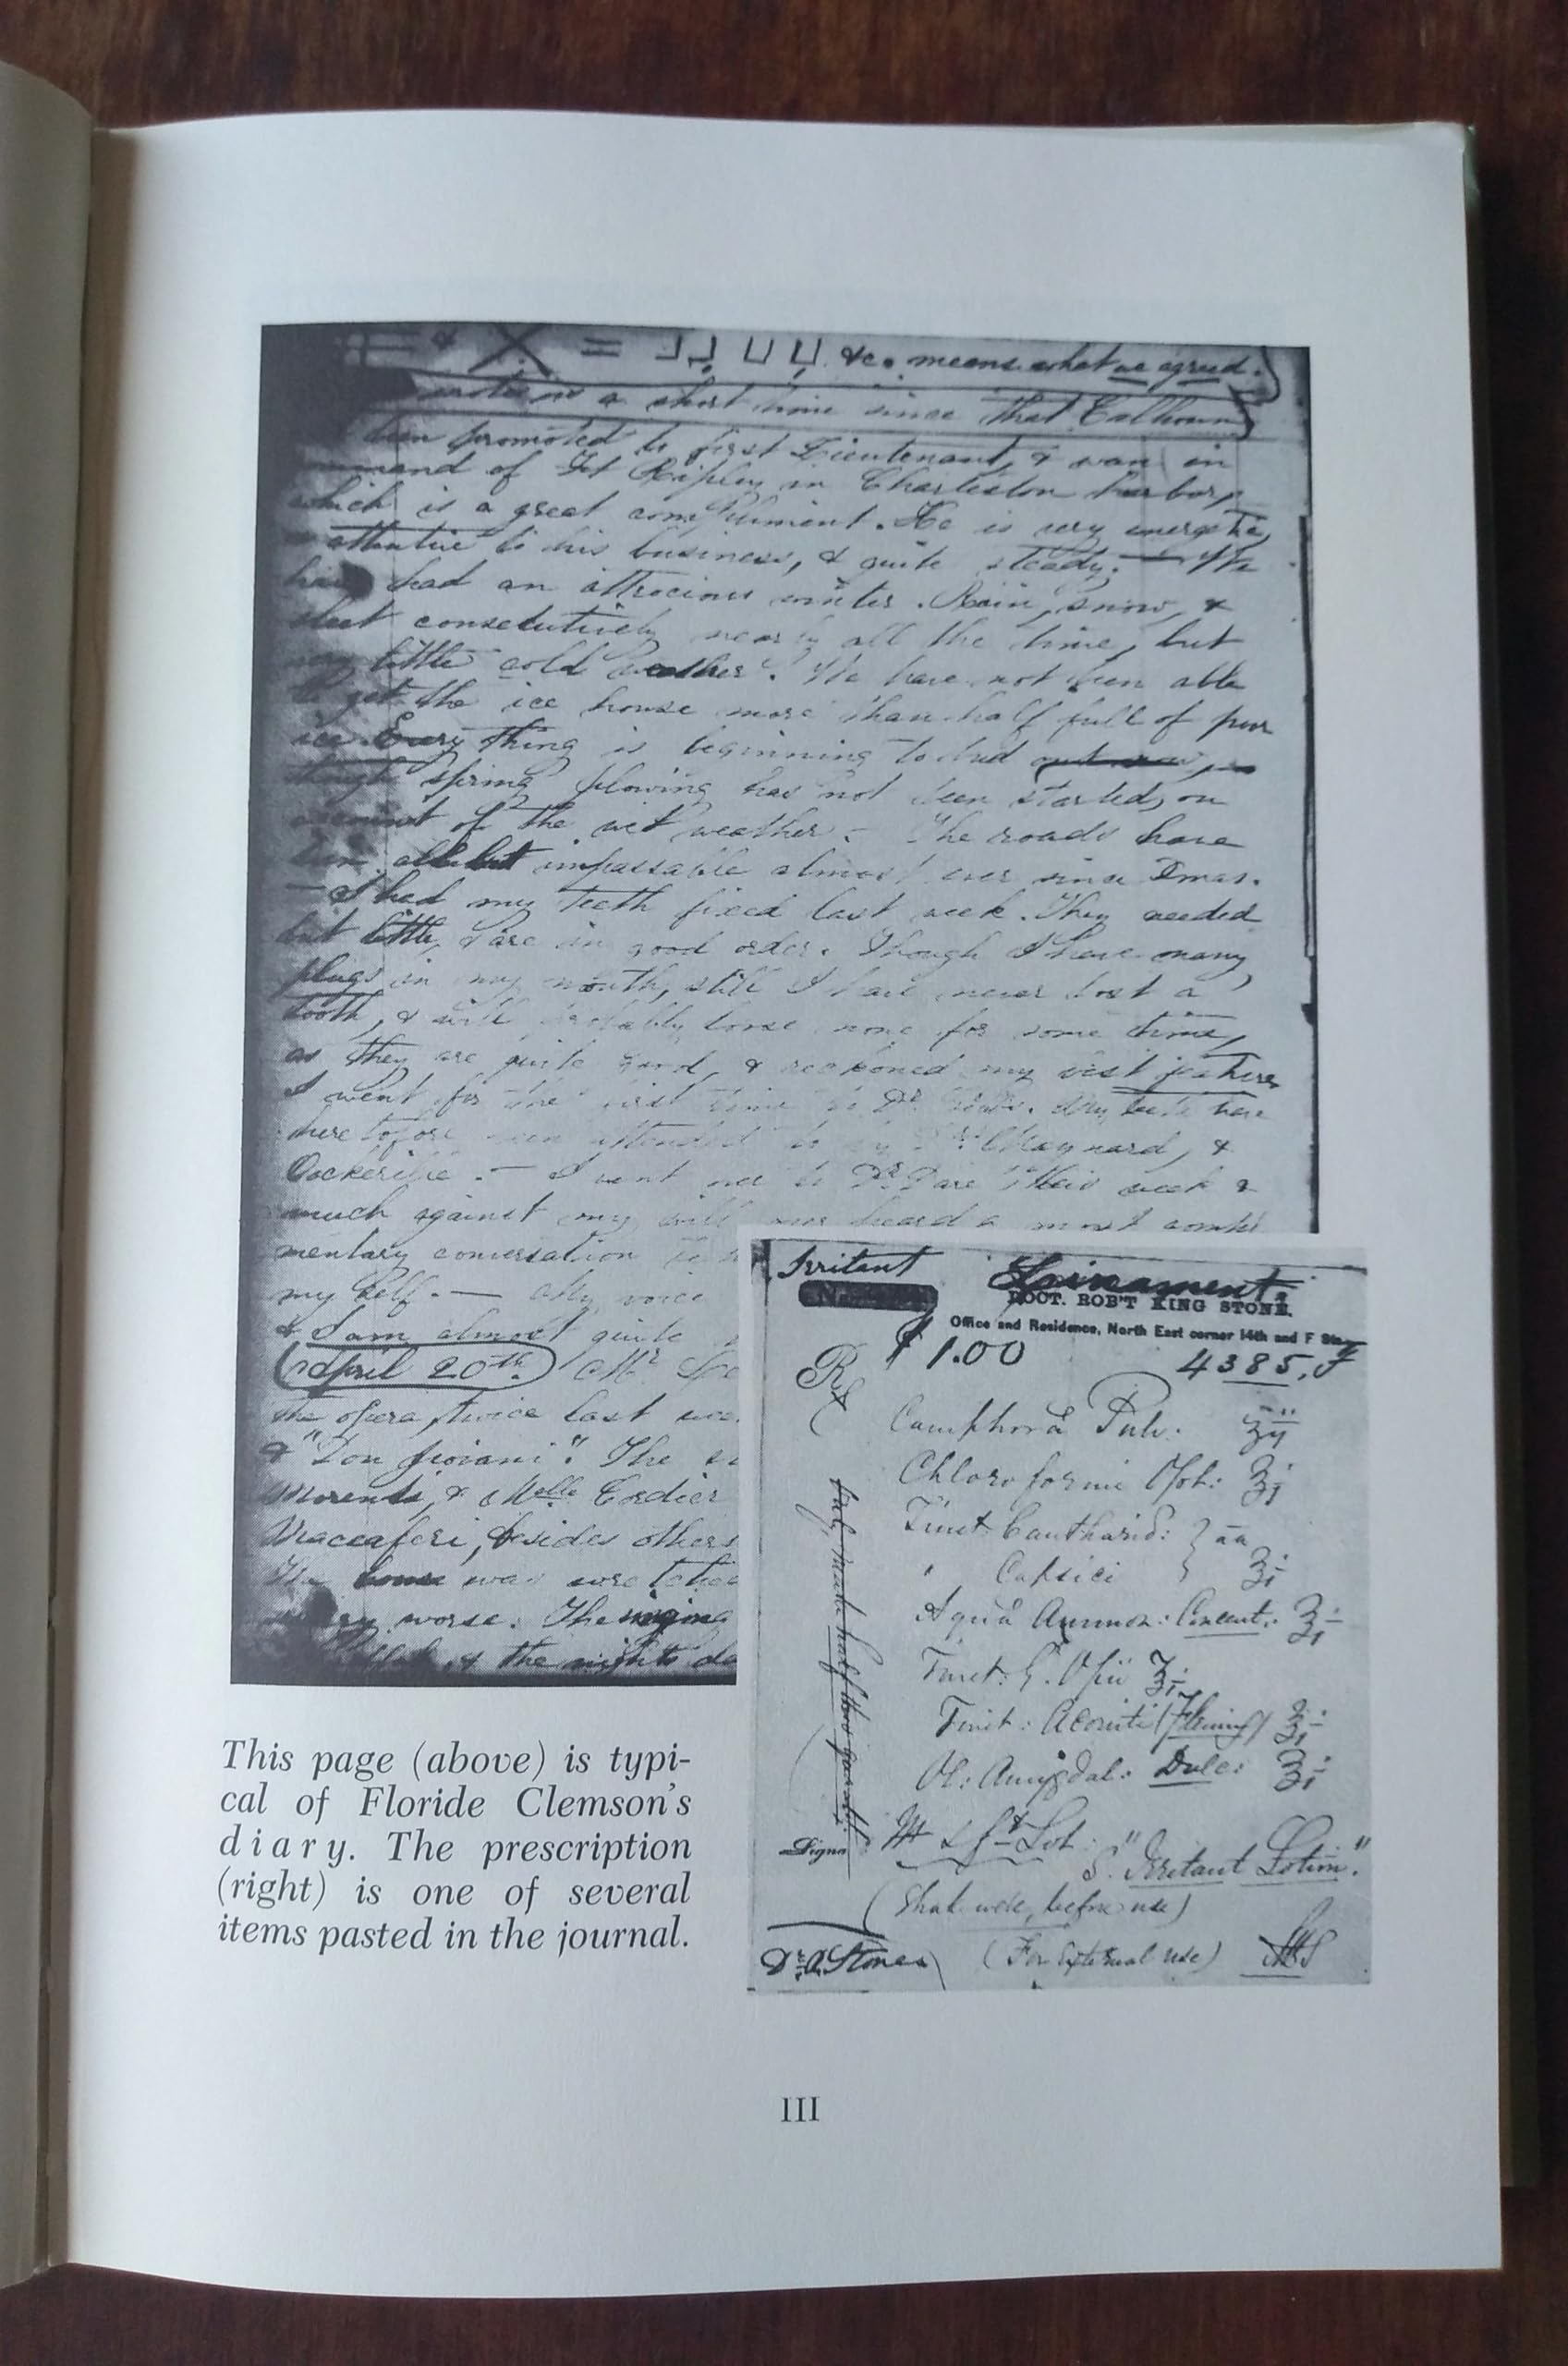 &c. means what we agreed.
a short time since that Calhoun
been promoted to first Lieutenant, & was in
of Ft Ripley in Charleston harbor,
which is a great compliment. He is very energetic,
attentive to his business, & quite steady. — We
had an attrocious winter. Rain, snow, &
sleet consecutively nearly all the time, but
little cold weather. We have not been able
to get the ice house more than half full of poor
ice. Every thing is beginning to bud
though spring plowing has not been started, on
account of the wet weather. — The roads have
been all but impassable almost ever since Xmas.
— I had my teeth fixed last week. They needed
but little, & are in good order. Though I have many
plugs in my mouth, still I have never lost a
tooth, & will probably loose none for some time,
as they are quite good, & reckoned my best feature
I went for the first time to Dr. My teeth have
heretofore been attended to by Maynard, &
Cockerille. — I went over to Dr. Dare this week &
much against my will over heard a most compli
mentary conversation
my self. — My voice
& I am almost quite
(April 20th.) Mr
the opera, twice last
& "Don giovani". The
Morensi, & Mlle Cordier
Macceaferi, besides others
The was wretched
worse. The singing
& the nights
Irritant Liniment.
DOCT. ROB'T KING STONE.
Office and Residence, North East corner 14th and F
$1.00 4385, F
Rx
Camphora Pulv. ʒij
Chloroformi Opt: ʒj
Tinct Cantharid: } aa
" Capsici } ʒj
Aqua Ammon: Concent: ʒj
Tinct: G. Opii ʒj
Tinct: Aconiti (Fleming) ʒj
Ol: Amygdal: Dulc: ʒj
only make half this quantity
Signa
S. "Irritant Lotion."
(Shake well, before use)
(For External use)
Dr. A. Stones
This page (above) is typi-
cal of Floride Clemson's
diary. The prescription
(right) is one of several
items pasted in the journal.
III